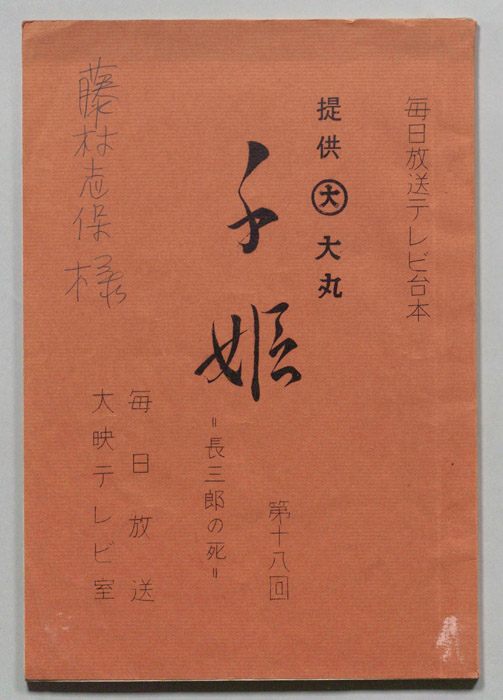 毎日放送テレビ台本
提供 大 大丸
千姫
第十八回
=長三郎の死=
毎日放送
大映テレビ室
藤村志保様